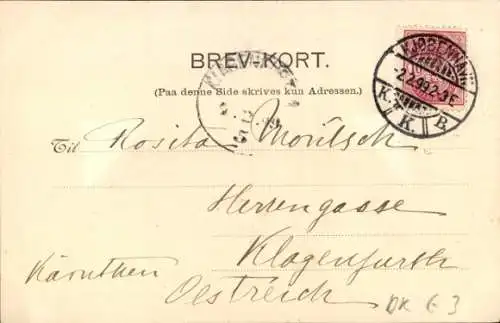 BREV-KORT.
(Paa denne Side skrives kun Adressen.)
KJØBENHAVN
2.2.99.2-3E
K. K. B.
Til Rosita Moritsch
Herrengasse
Klagenfurth
Kärnthen
Oestreich
DK 63